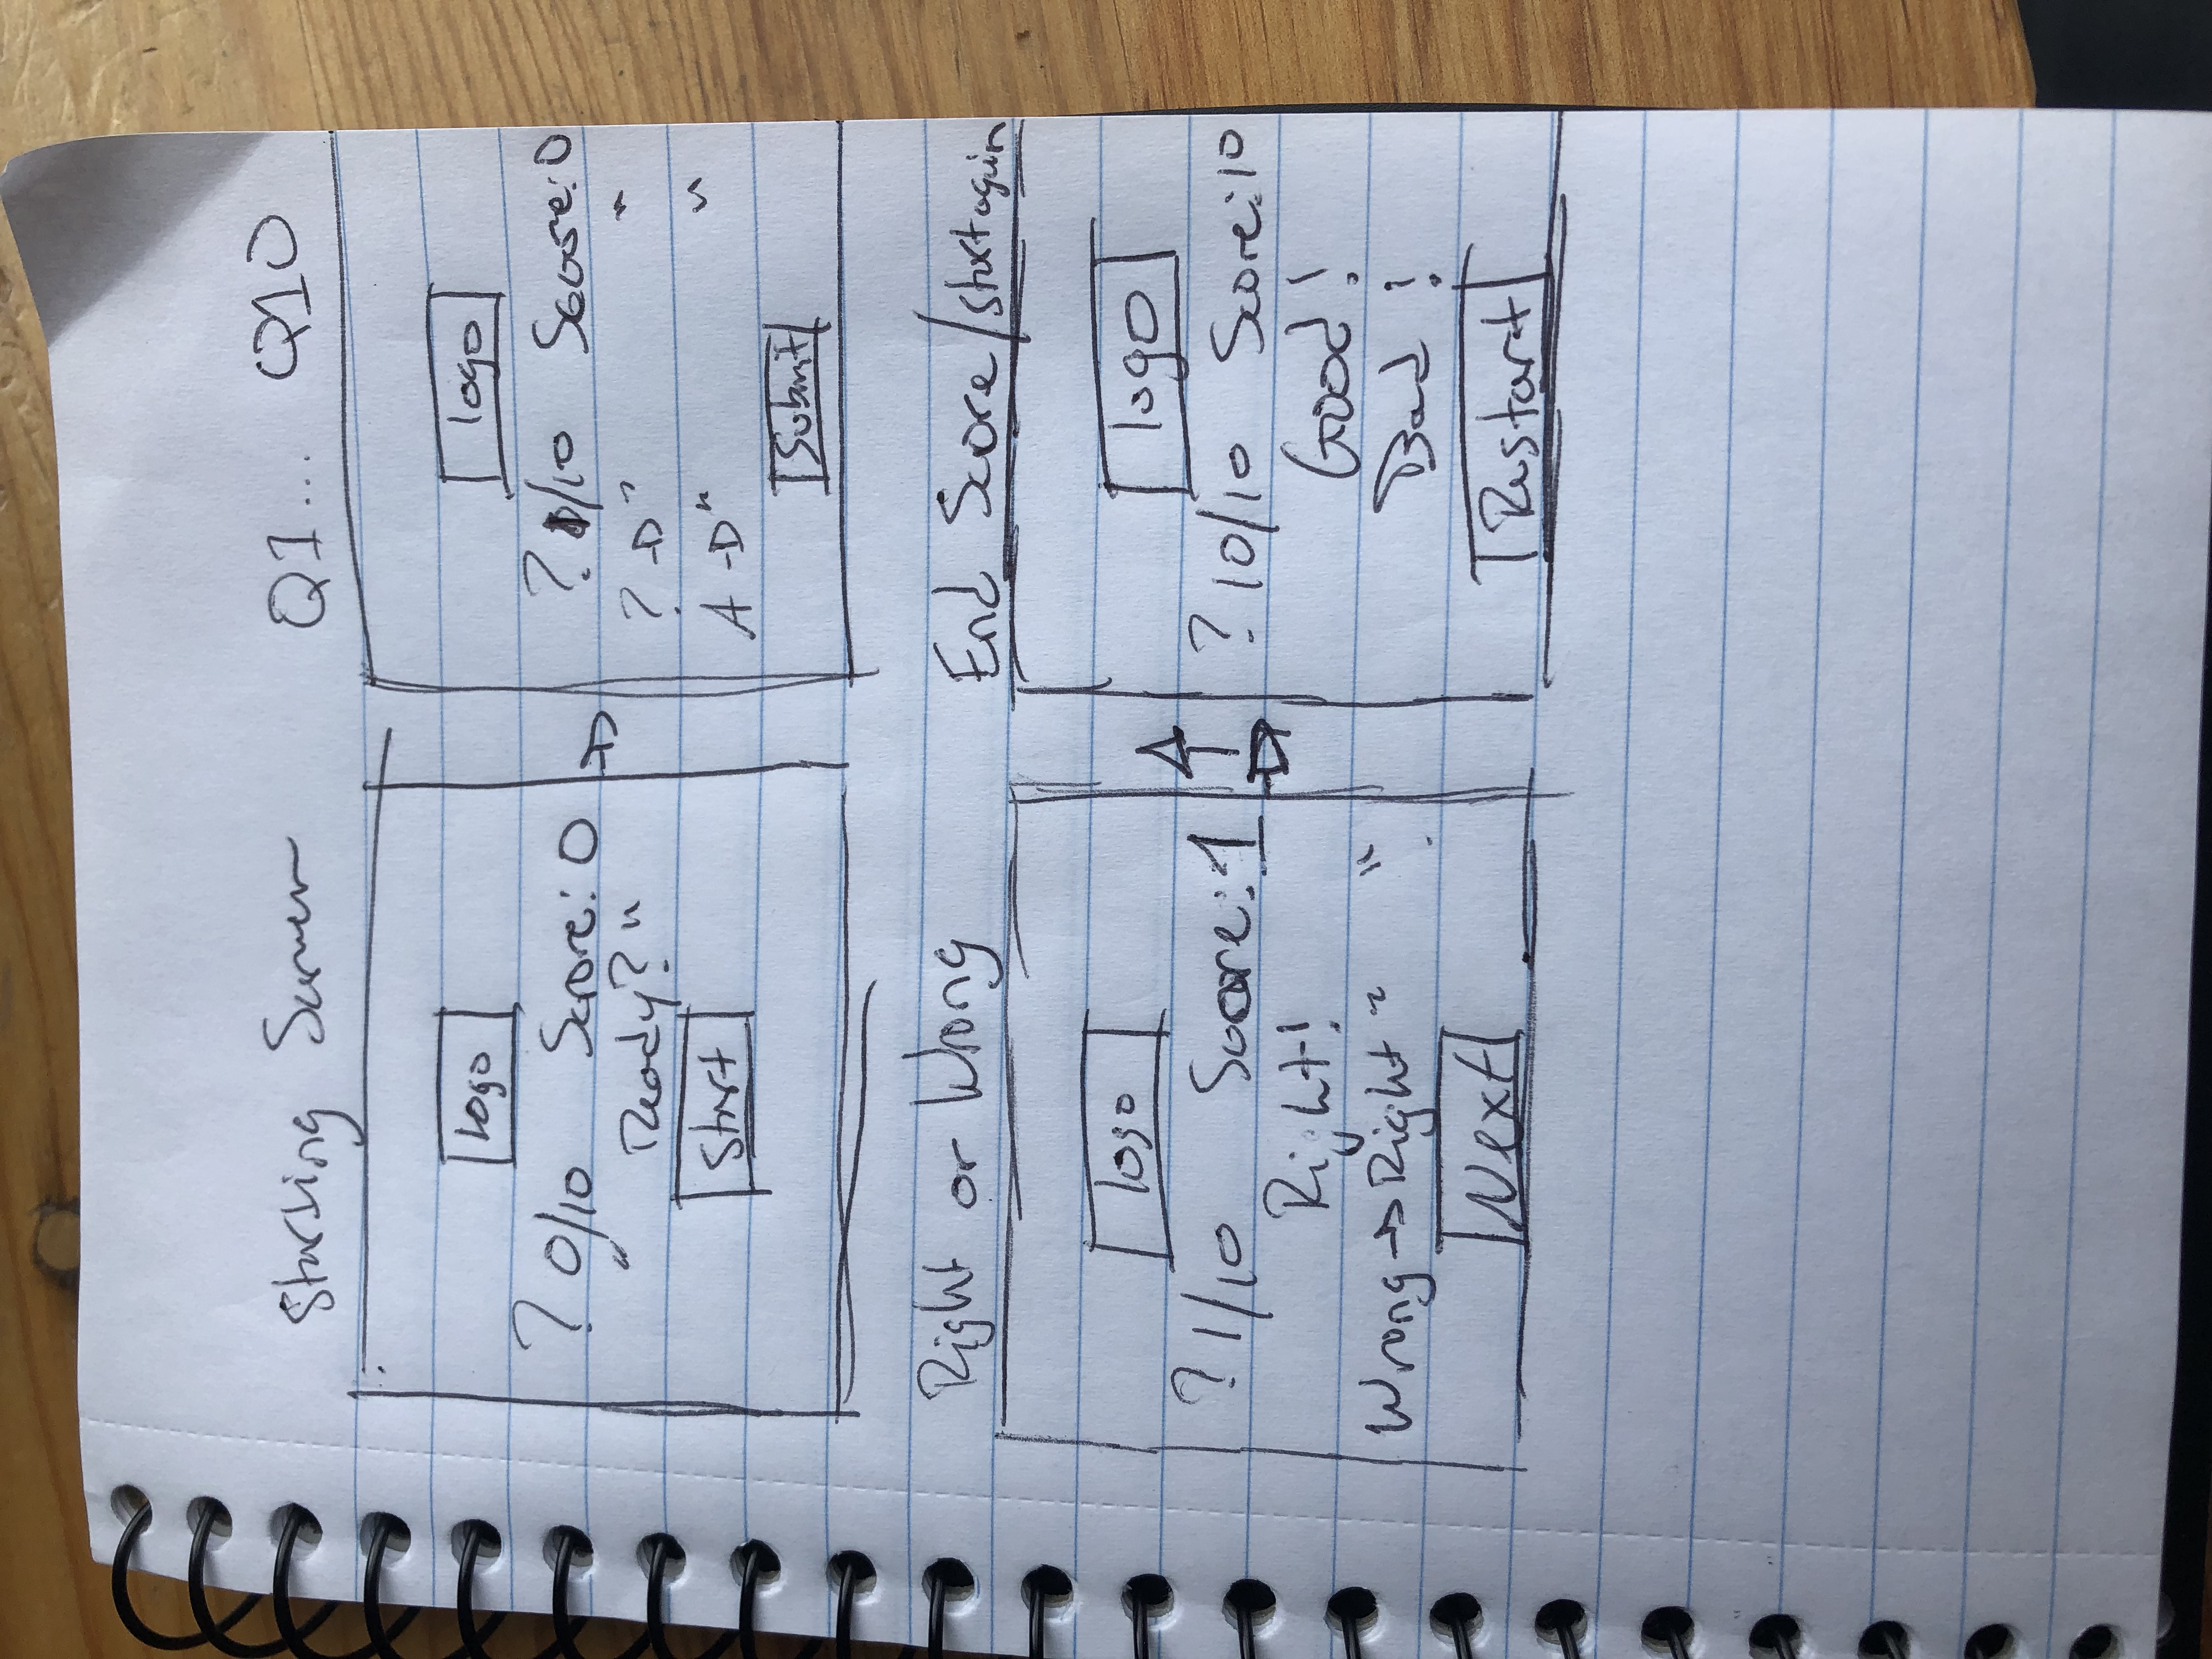 Starting Screen
logo
? 0/10 Score: 0
" Ready? "
Start
Q1... Q10
logo
? 1/10 Score: 0
? → " "
A → " "
Submit
Right or Wrong
logo
? 1/10 Score: 1
Right!
Wrong → Right " "
Next
End Score/start again
logo
? 10/10 Score: 10
Good!
Bad!
Restart